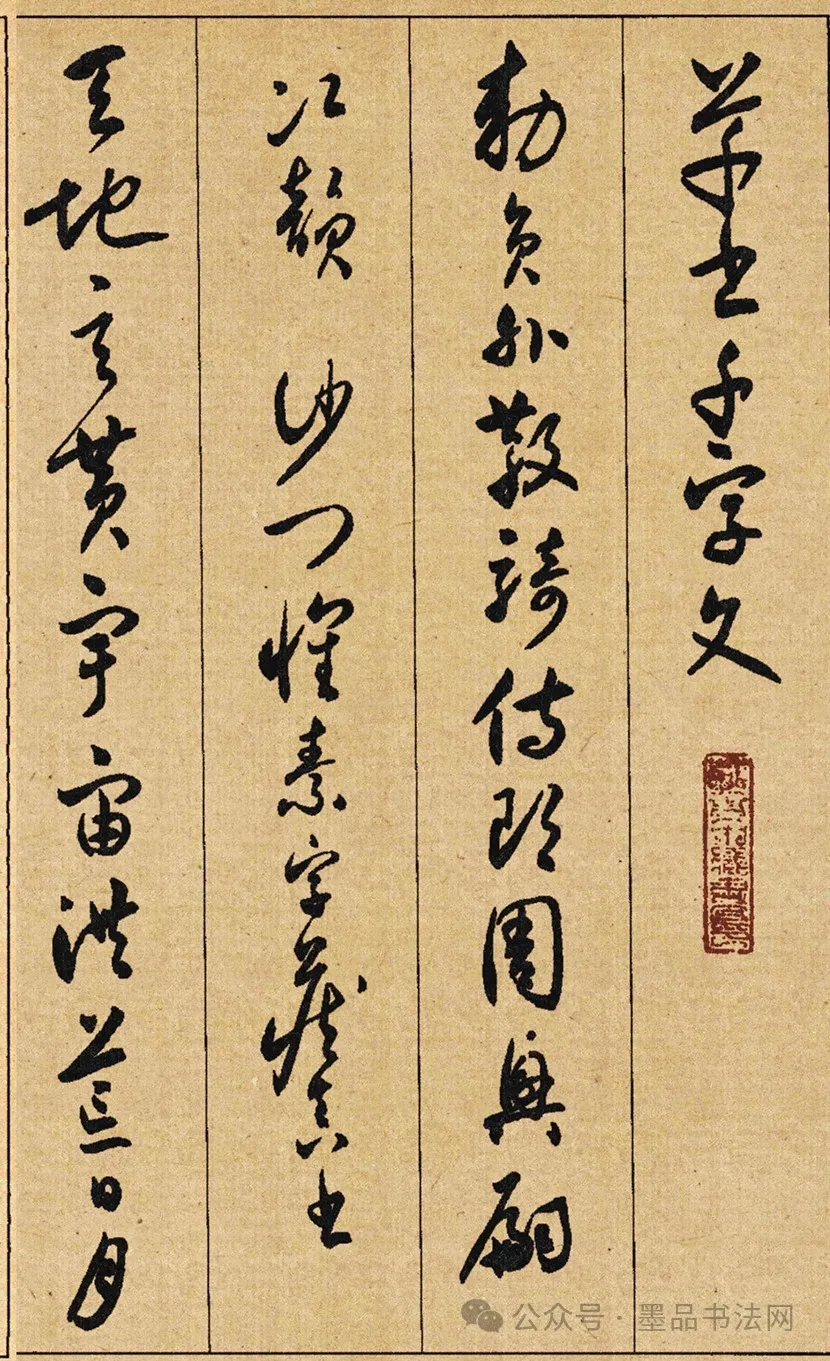 草書千字文
勅員外散騎侍郎周興嗣
次韻 沙門懷素字藏真書
天地玄黃宇宙洪荒日月
公众号 · 墨品书法网